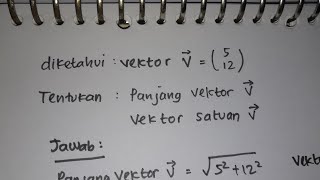 diketahui : vektor v⃗ = (5 12)
Tentukan : Panjang vektor v⃗
vektor satuan v⃗
Jawab :
Panjang vektor v⃗ = √5²+12²